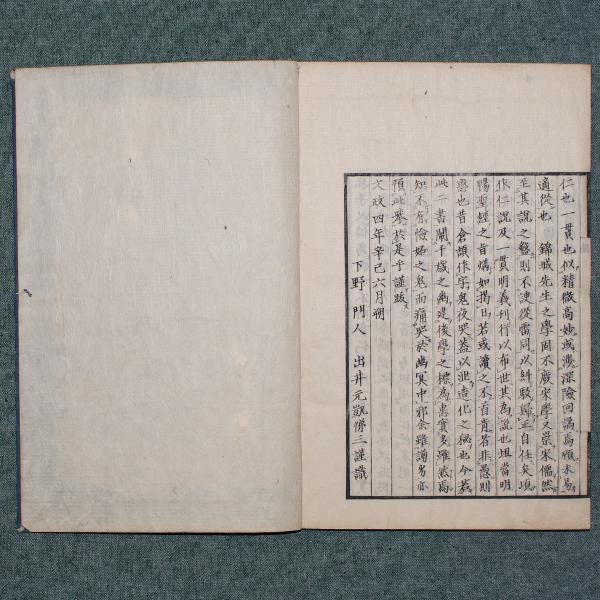 仁也一貫也似精微高妙或涉深險回譎為雁未易
適從也　錦城先生之學固不廢宋學又崇宋儒然
至其說之盭則不詭從雷同以糾駁歸正自任矣頃
作仁說及一貫明義刊行以布世其為說也坦當明
暢聖經之旨煥如揭日若或讀之不首肯者非愚則
惑也昔倉頡作字鬼夜哭蓋以泄造化之秘也今茲
此二書闡千歲之幽建後學之標為惠實多雖然焉
知不有險姊之鬼而痛哭於幽冥中邪余雖謭劣亦
預此舉於是乎謹跋
文政四年辛巳六月朔
下野　門人　出井元凱傑三謹識